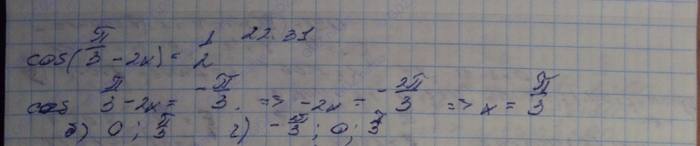 22.31
cos(π/3 - 2x) = 1/2
cos π/3 - 2x = -π/3. => -2x = -2π/3 => x = π/3
б) 0; π/3 г) -π/3; 0; π/3